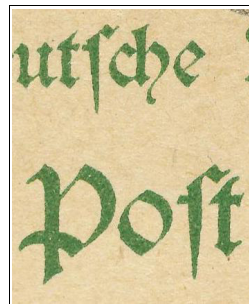 utſche
Poſt